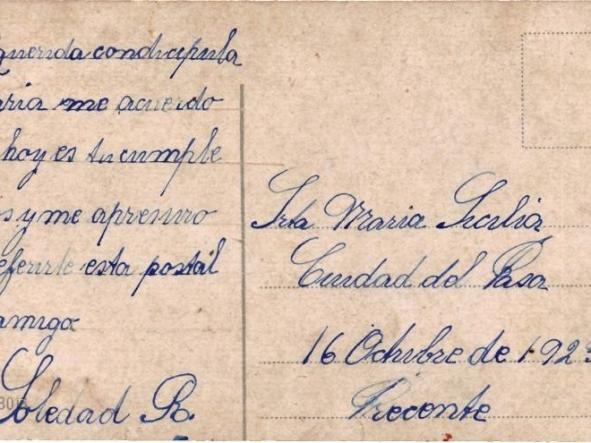 Querida condicipula
aria me acuerdo
hoy es tu cumple
s y me apresuro
eferirte esta postal
amiga
Soledad R.
Srta Maria Sicilia
Ciudad del Pasa
16 Octubre de 192
Presente